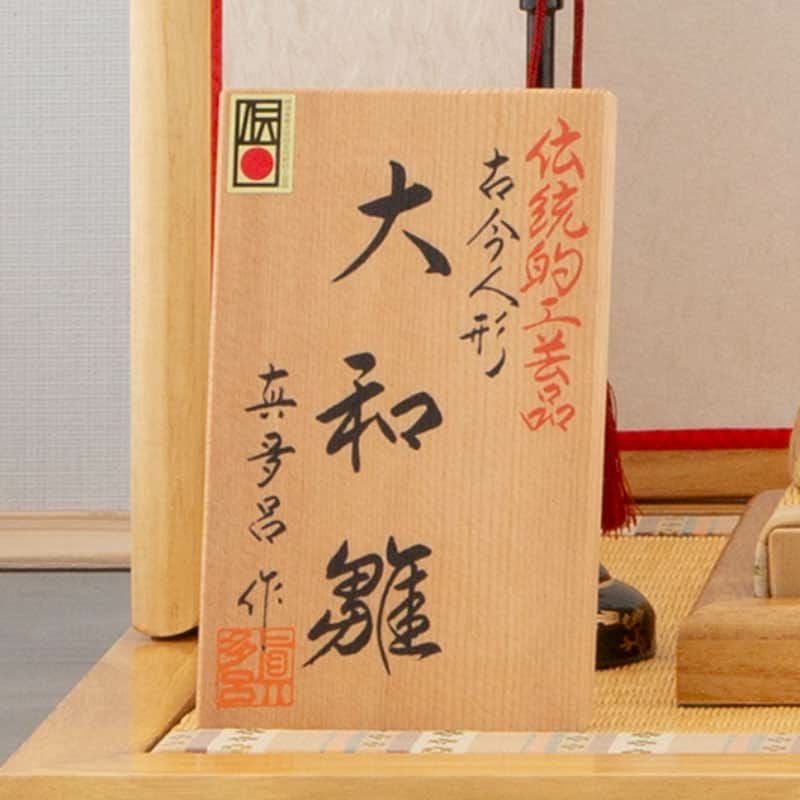 伝統的工芸品
古今人形
大和雛
真多呂作
眞多呂
伝